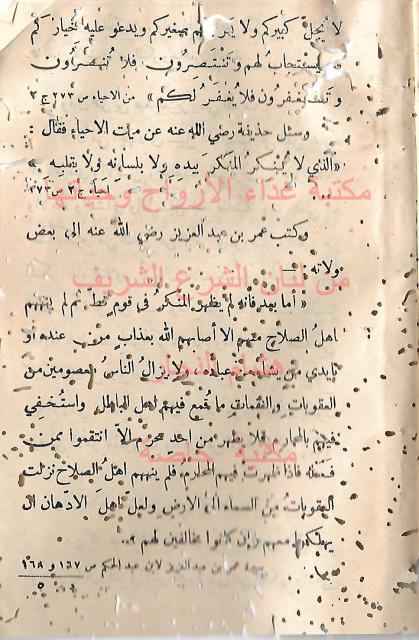 لا يُجِلّ كبيركم ولا يرحم صغيركم ويدعو عليه خياركم
فلا يستجاب لهم وتَنْتَصِرُون فلا تُنصَرُون
وتستغفرُون فلا يُغفَرُ لكم » من الاحياء ص ٢٧٣ ج ٢
وسئل حذيفة رضي الله عنه عن ميت الاحياء فقال :
« الذي لا يُنكر المنكر بيده ولا بلسانه ولا بقلبه »
مكتبة غذاء الأرواح وحياتها
وكتب عمر بن عبد العزيز رضي الله عنه الى بعض
ولاته :
من لبان الشرع الشريف
« أما بعد فانه لم يظهر المنكر في قوم قط ثم لم ينههم
اهلُ الصلاح منهم الا أصابهم الله بعذاب من عنده أو
بايدي من يشاء من عباده ولا يزال الناسُ معصومين من
هشام النجار
العقوبات والنقمات ما قُمع فيهم اهل الباطل واستُخفي
فيهم بالمحارم فلا يظهر من احد محرم الاّ انتقموا ممن
مكتبة خاصة
فعله فاذا ظهرت فيهم المحارم فلم ينههم اهلُ الصلاح نزلت
العقوبات من السماء الى الارض ولعل اهل الادهان ان
يهلكوا معهم وان كانوا مخالفين لهم »
سيرة عمر بن عبد العزيز لابن عبد الحكم ص ١٦٧ و ١٦٨
٥